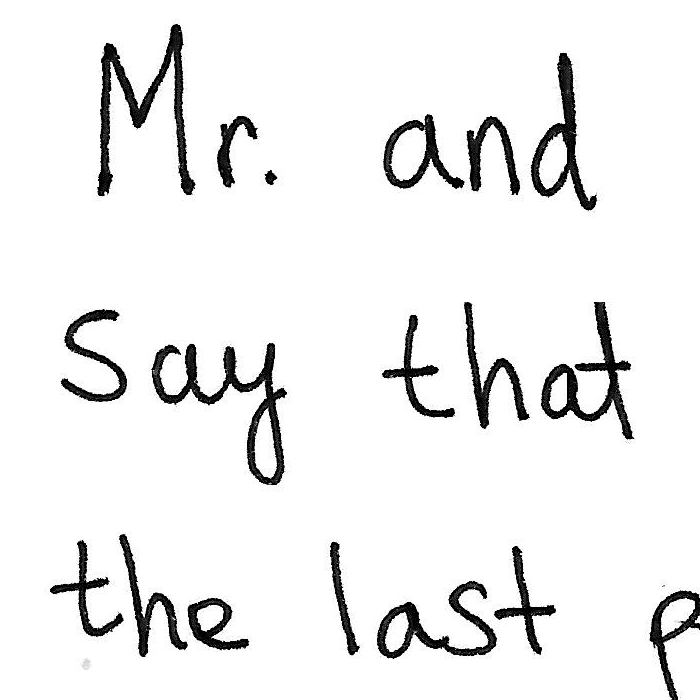 Mr. and
say that
the last p